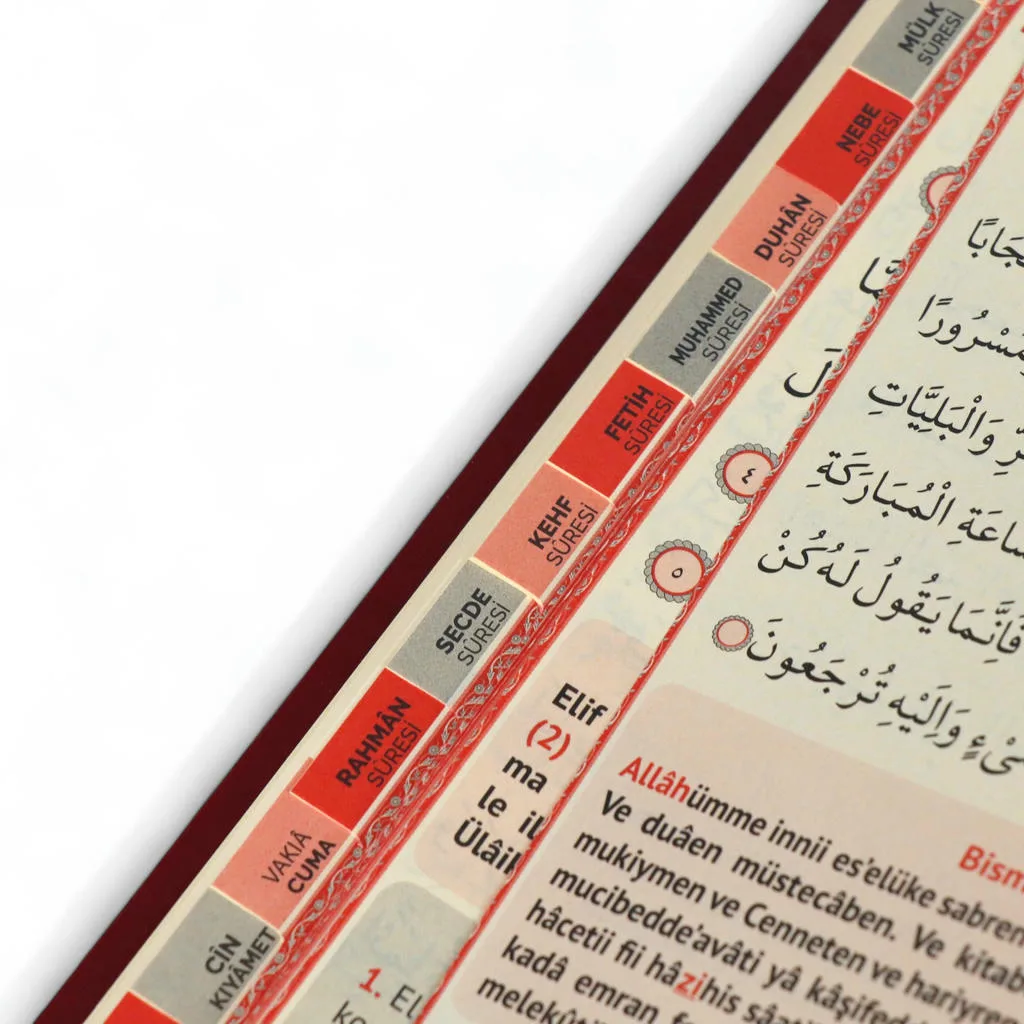 MÜLK
SÛRESİ
NEBE
SÛRESİ
DUHÂN
SÛRESİ
MUHAMMED
SÛRESİ
FETİH
SÛRESİ
KEHF
SÛRESİ
SECDE
SÛRESİ
RAHMÂN
SÛRESİ
VAKIÂ
CUMA
CİN
KIYÂMET
٤
٥
Elif
(2)
ma
le
1. El
مَسْرُورًا
وَالْبَلِيَّاتِ
الْمُبَارَكَةِ
فَاِنَّمَا يَقُولُ لَهُ كُنْ
وَاِلَيْهِ تُرْجَعُونَ
Bism
Allâhümme innii es'elüke sabren
Ve duâen müstecâben. Ve kitab
mukiymen ve Cenneten ve hariyren
mucibedde'avâti yâ kâşifed
hâcetii fii hâzihis sâati
kadâ emran